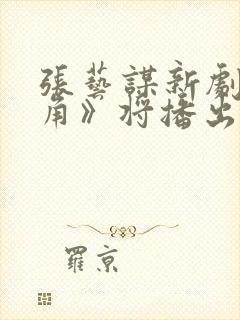 張藝謀新劇
角》将播出
羅京